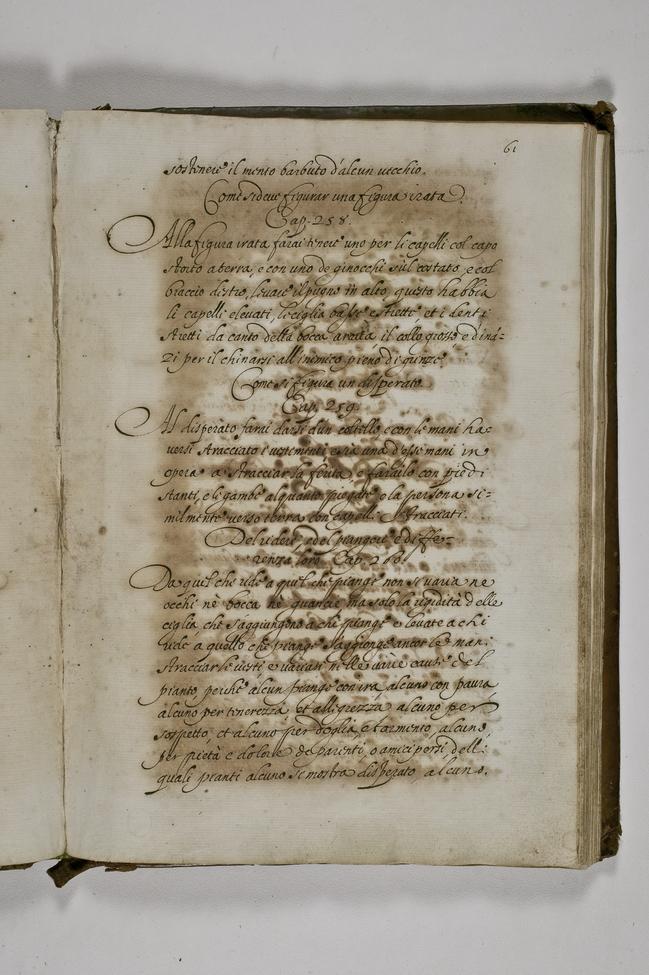 61
sostenere il mento barbuto d'alcun vecchio.
Come si deve figurar una figura irata
Cap. 258.
Alla figura irata farai tenere uno per li capelli col capo
storto a terra, e con uno de ginocchi sul costato, e col
braccio destro, levare il pugno in alto, questo habbia
li capelli elevati, le ciglia basse e strette et i denti
stretti da canto della bocca arcata il collo grosso e dinā-
zi per il chinarsi all'inimico pieno di grinze
Come si figura un disperato
Cap. 259.
Al disperato farai darsi d'un coltello e con le mani ha-
versi stracciato i vestimenti e sia una d'esse mani in
opera a stracciar la ferita e farailo con piedi
stanti, e le gambe alquanto piegate e la persona si-
milmente verso terra con capelli stracciati.
Del ridere, e del piangere e diffe-
renza loro. Cap. 260.
Da quel che ride a quel che piange non si varia ne
occhi nè bocca nè guancie ma solo la rigidità delle
ciglia che s'aggiungono a chi piange e levate a chi
ride a quello che piange s'aggionge ancor le mani
stracciar le vesti e variasi nelle varie cause del
pianto perche alcun piange con ira, alcuno con paura
alcuno per tenerezza et allegrezza alcuno per
sospetto, et alcuno per doglia e tormento, alcuno
per pietà e dolore de parenti, o amici persi delli
quali pianti alcuno si mostra disperato, alcuno.